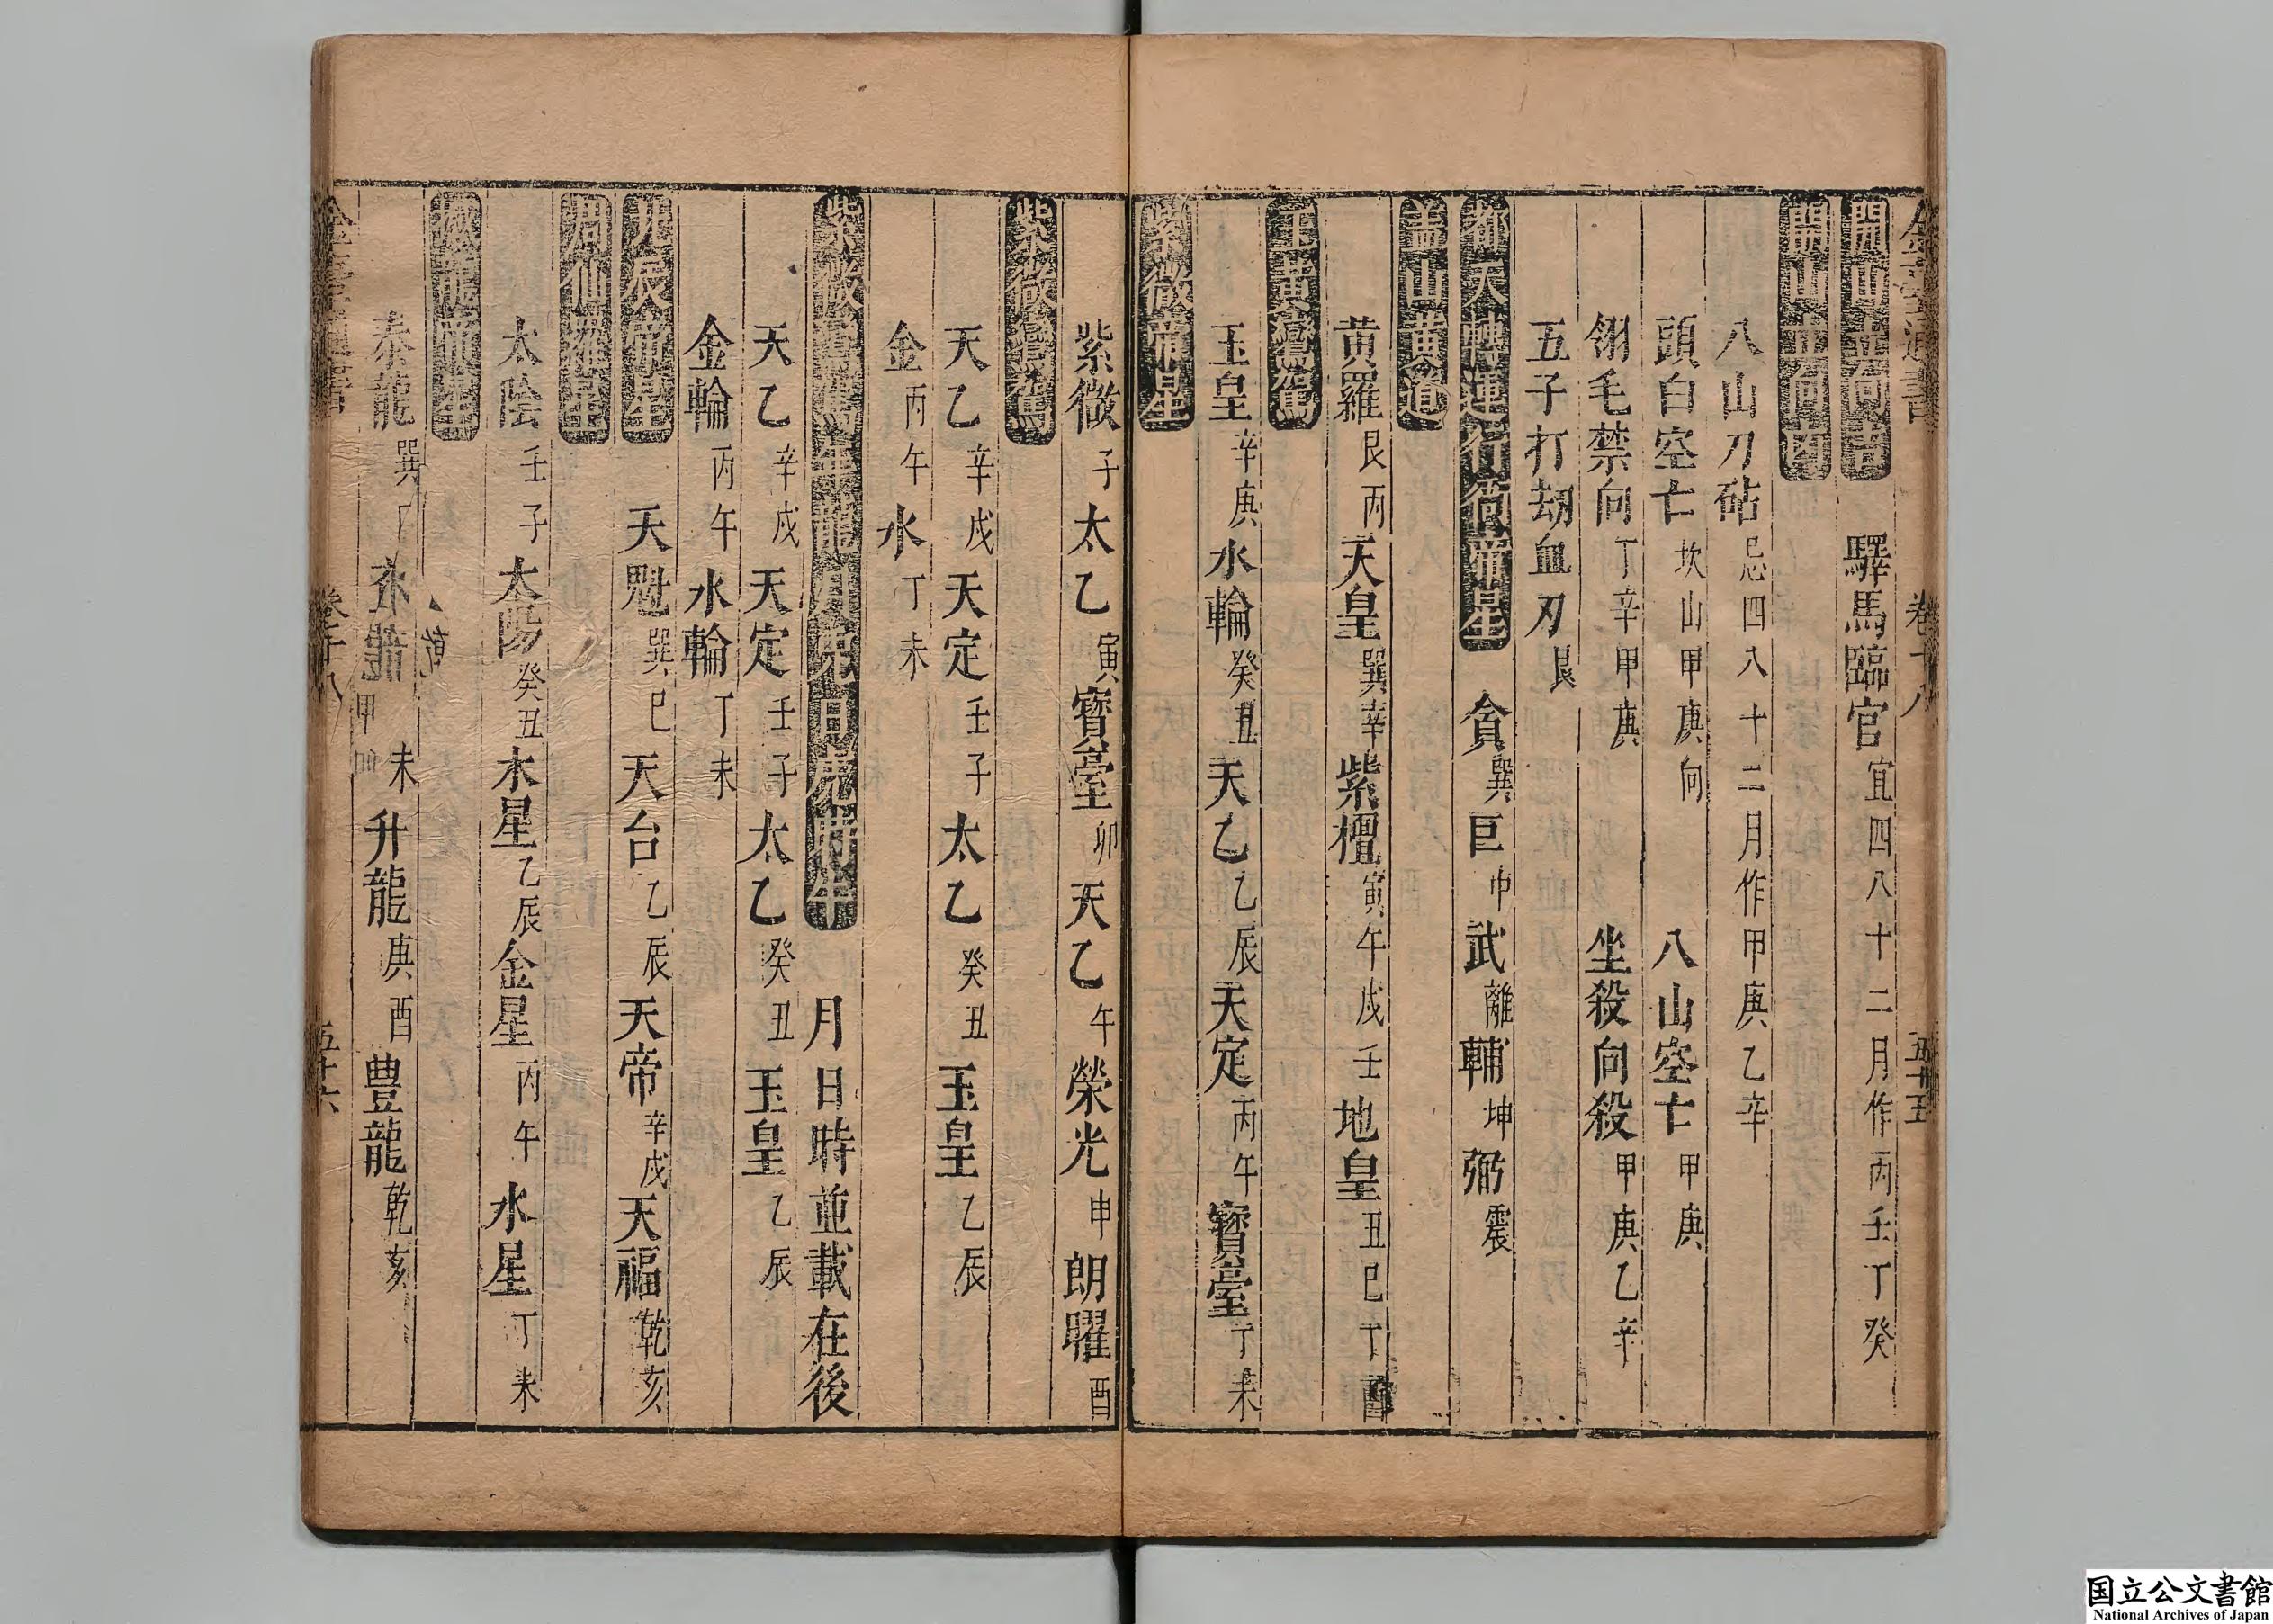 卷十八
五十五
開山立向吉 驛馬臨官宜四八十二月作丙壬丁癸
開山立向凶
八山刀砧忌四八十二月作甲庚乙辛
頭白空亡坎山甲庚向 八山空亡甲庚
翎毛禁向丁辛甲庚 坐殺向殺甲庚乙辛
五子打劫血刃艮
都天轉運行衙帝星 貪巽巨中武離輔坤弼震
盖山黄道
黄羅艮丙天皇巽辛紫檀寅午戌壬地皇丑巳丁酉
玉皇鸞駕
玉皇辛庚水輪癸丑天乙乙辰天定丙午寳臺丁未
紫微帝星
紫微子太乙寅寳臺卯天乙午榮光申朗曜酉
紫微鸞駕
天乙辛戌天定壬子太乙癸丑玉皇乙辰
金丙午水丁未
月日時並載在後
天乙辛戌天定壬子太乙癸丑玉皇乙辰
金輪丙午水輪丁未
九辰帝星 天魁巽巳天台乙辰天帝辛戌天福乾亥
太陰壬子太陽癸丑木星乙辰金星丙午水星丁未
龍帝星
泰龍巽 龍甲 未升龍庚酉豊龍乾亥
五十六
国立公文書館
National Archives of Japan